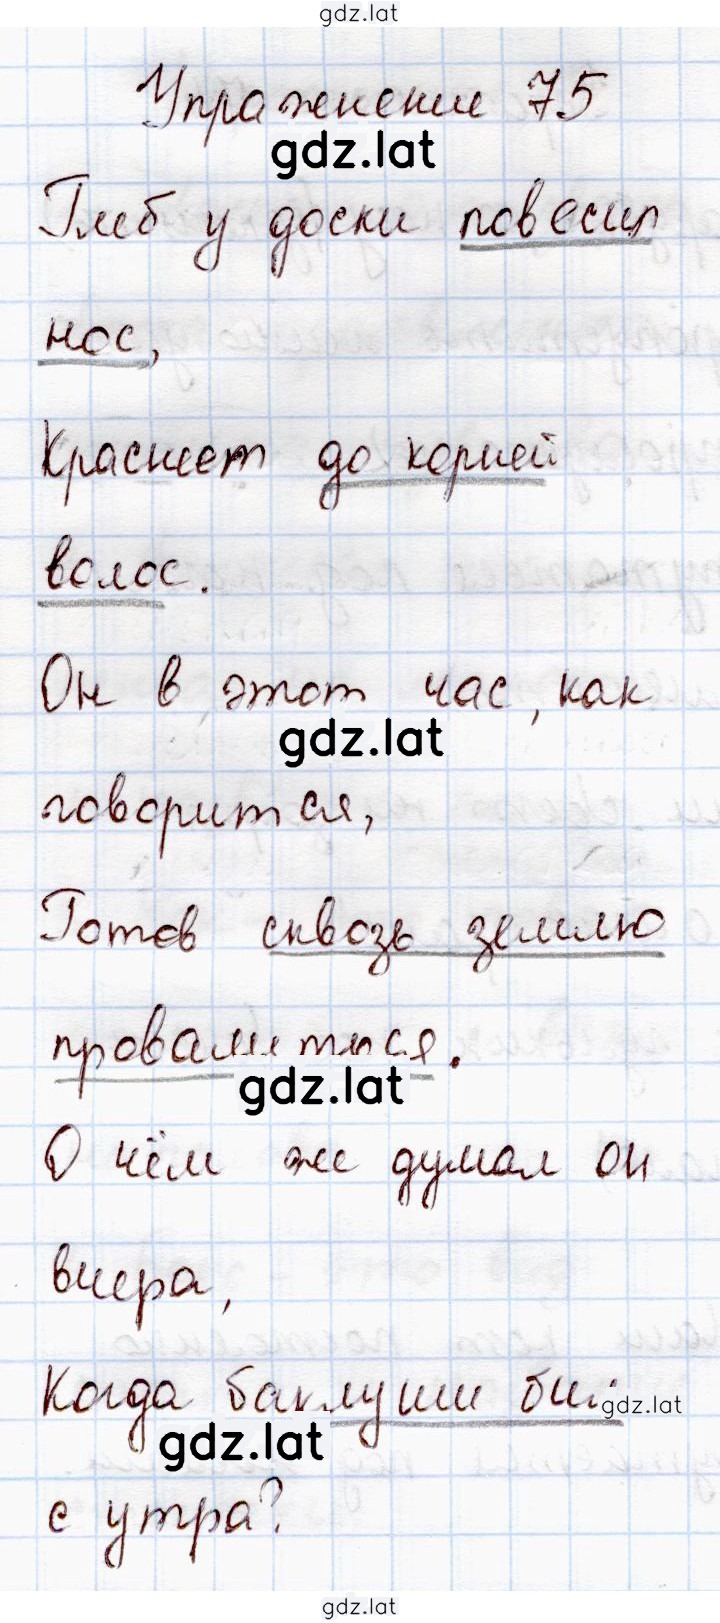 gdz.lat
Упражнение 75
gdz.lat
Глеб у доски повесил
нос,
Краснеет до корней
волос.
Он в этот час, как
gdz.lat
говорится,
Готов сквозь землю
провалиться.
gdz.lat
О чём же думал он
вчера,
Когда баклуши бил
gdz.lat
gdz.lat
с утра?
gdz.lat